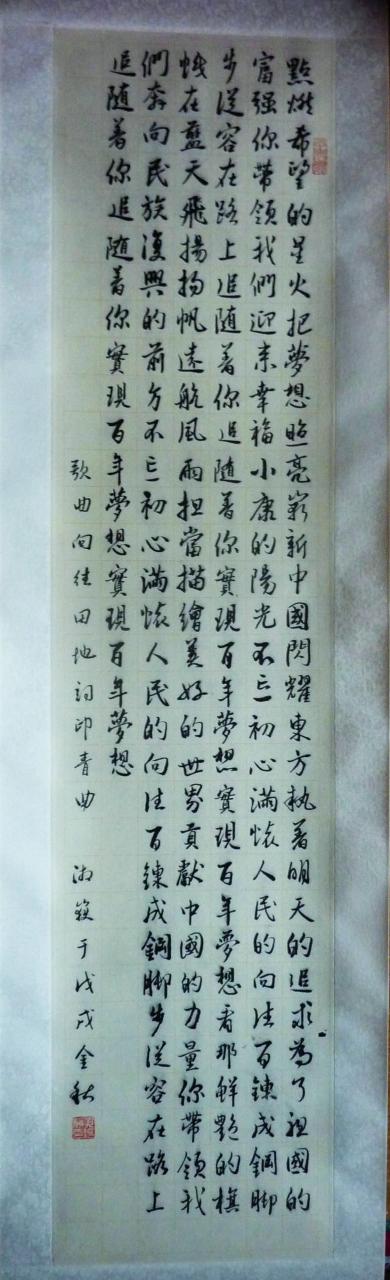 點燃希望的星火把夢想照亮嶄新中國閃耀東方執著明天的追求為了祖國的
富强你带領我們迎来幸福小康的陽光不忘初心滿懷人民的向往百鍊成鋼脚
步從容在路上追随着你追随着你實現百年夢想實現百年夢想看那鮮艷的旗
幟在藍天飛揚揚帆遠航風雨担當描繪美好的世界貢獻中國的力量你带領我
們奔向民族復興的前方不忘初心滿懷人民的向往百鍊成鋼脚步從容在路上
追随着你追随着你實現百年夢想實現百年夢想
歌曲向往田地詞印青曲
于戊戌金秋